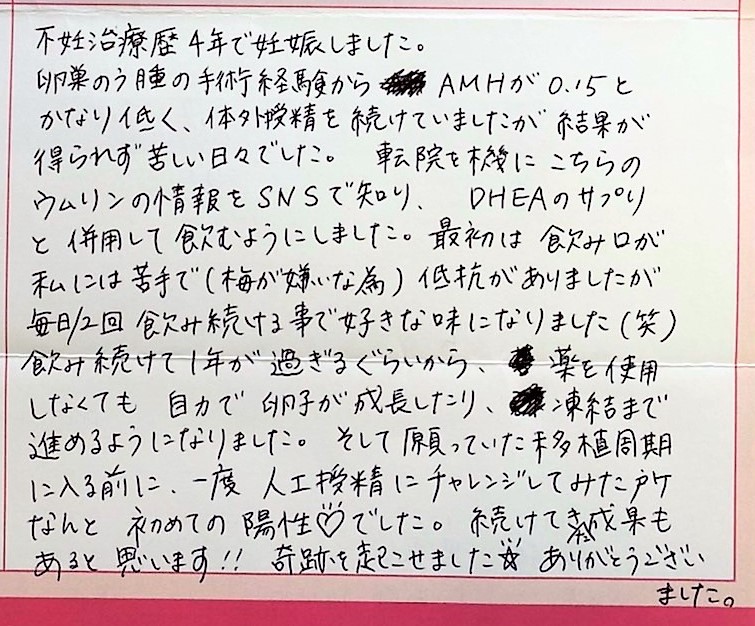 不妊治療歴4年で妊娠しました。
卵巣のう腫の手術経験から AMHが0.15と
かなり低く、体外授精を続けていましたが結果が
得られず苦しい日々でした。 転院を機にこちらの
ウムリンの情報をSNSで知り、 DHEAのサプリ
と併用して飲むようにしました。最初は飲み口が
私には苦手で(梅が嫌いな為)低抗がありましたが
毎日/2回飲み続ける事で好きな味になりました(笑)
飲み続けて1年が過ぎるぐらいから、薬を使用
しなくても自力で卵子が成長したり、凍結まで
進めるようになりました。そして願っていた移植周期
に入る前に、一度人工授精にチャレンジしてみた所
なんと初めての陽性♡でした。続けてきた成果も
あると思います!! 奇跡を起こせました☆ ありがとうござい
ました。